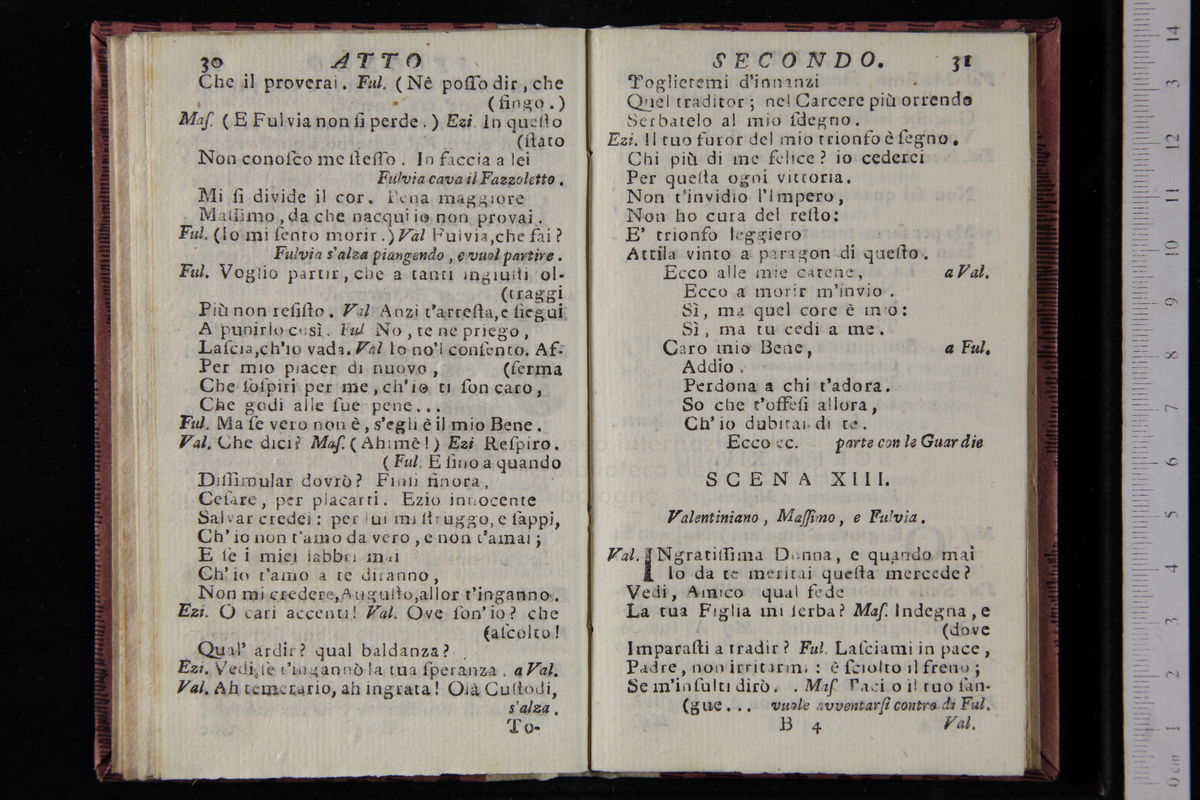 30 ATTO
Che il proverai. Ful. (Nè poſſo dir, che
(fingo.)
Maſ. (E Fulvia non ſi perde.) Ezi. In queſto
(ſtato
Non conoſco me ſteſſo. In faccia a lei
Fulvia cava il Fazzoletto.
Mi ſi divide il cor. Pena maggiore
Maſſimo, da che nacqui io non provai.
Ful. (Io mi ſento morir.) Val Fulvia, che fai?
Fulvia s'alza piangendo, e vuol partire.
Ful. Voglio partir, che a tanti ingiuſti ol-
(traggi
Più non reſiſto. Val Anzi t'arreſta, e ſiegui
A punirlo così. Ful No, te ne priego,
Laſcia, ch'io vada. Val Io no'l conſento. Af-
Per mio piacer di nuovo, (ferma
Che ſoſpiri per me, ch'io ti ſon caro,
Che godi alle ſue pene...
Ful. Ma ſe vero non è, s'egli è il mio Bene.
Val. Che dici? Maſ. (Ahimè!) Ezi Reſpiro.
(Ful. E ſino a quando
Diſſimular dovrò? Finſi finora,
Ceſare, per placarti. Ezio innocente
Salvar credei: per lui mi ſtruggo, e ſappi,
Ch'io non t'amo da vero, e non t'amai;
E ſe i miei labbri mai
Ch'io t'amo a te diranno,
Non mi credere, Auguſto, allor t'inganno.
Ezi. O cari accenti! Val. Ove ſon'io? che
(aſcolto!
Qual' ardir? qual baldanza?
Ezi. Vedi, ſe t'ingannò la tua ſperanza. a Val.
Val. Ah temerario, ah ingrata! Olà Cuſtodi,
s'alza.
To-
SECONDO. 31
Toglietemi d'innanzi
Quel traditor; nel Carcere più orrendo
Serbatelo al mio ſdegno.
Ezi. Il tuo furor del mio trionfo è ſegno.
Chi più di me felice? io cederei
Per queſta ogni vittoria.
Non t'invidio l'Impero,
Non ho cura del reſto:
E' trionfo leggiero
Attila vinto a paragon di queſto.
Ecco alle mie catene, a Val.
Ecco a morir m'invio.
Sì, ma quel core è mio:
Sì, ma tu cedi a me.
Caro mio Bene, a Ful.
Addio.
Perdona a chi t'adora.
So che t'offeſi allora,
Ch'io dubitai di te.
Ecco ec. parte con le Guardie
SCENA XIII.
Valentiniano, Maſſimo, e Fulvia.
Val. INgratiſſima Donna, e quando mai
Io da te meritai queſta mercede?
Vedi, Amico qual fede
La tua Figlia mi ſerba? Maſ. Indegna, e
(dove
Imparaſti a tradir? Ful Laſciami in pace,
Padre, non irritarmi: è ſciolto il freno;
Se m'inſulti dirò.. Maſ Taci o il tuo ſan-
(gue... vuole avventarſi contro di Ful.
B 4 Val.